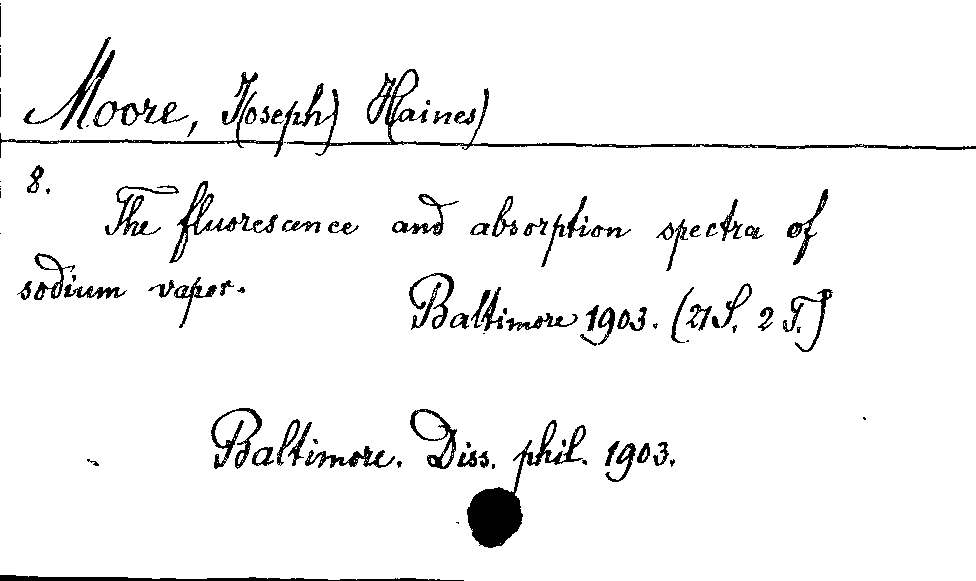 Moore, J(oseph) H(aines)
8.
The fluorescence and absorption spectra of
sodium vapor.
Baltimore 1903. (21 S. 2 T.)
Baltimore. Diss. phil. 1903.